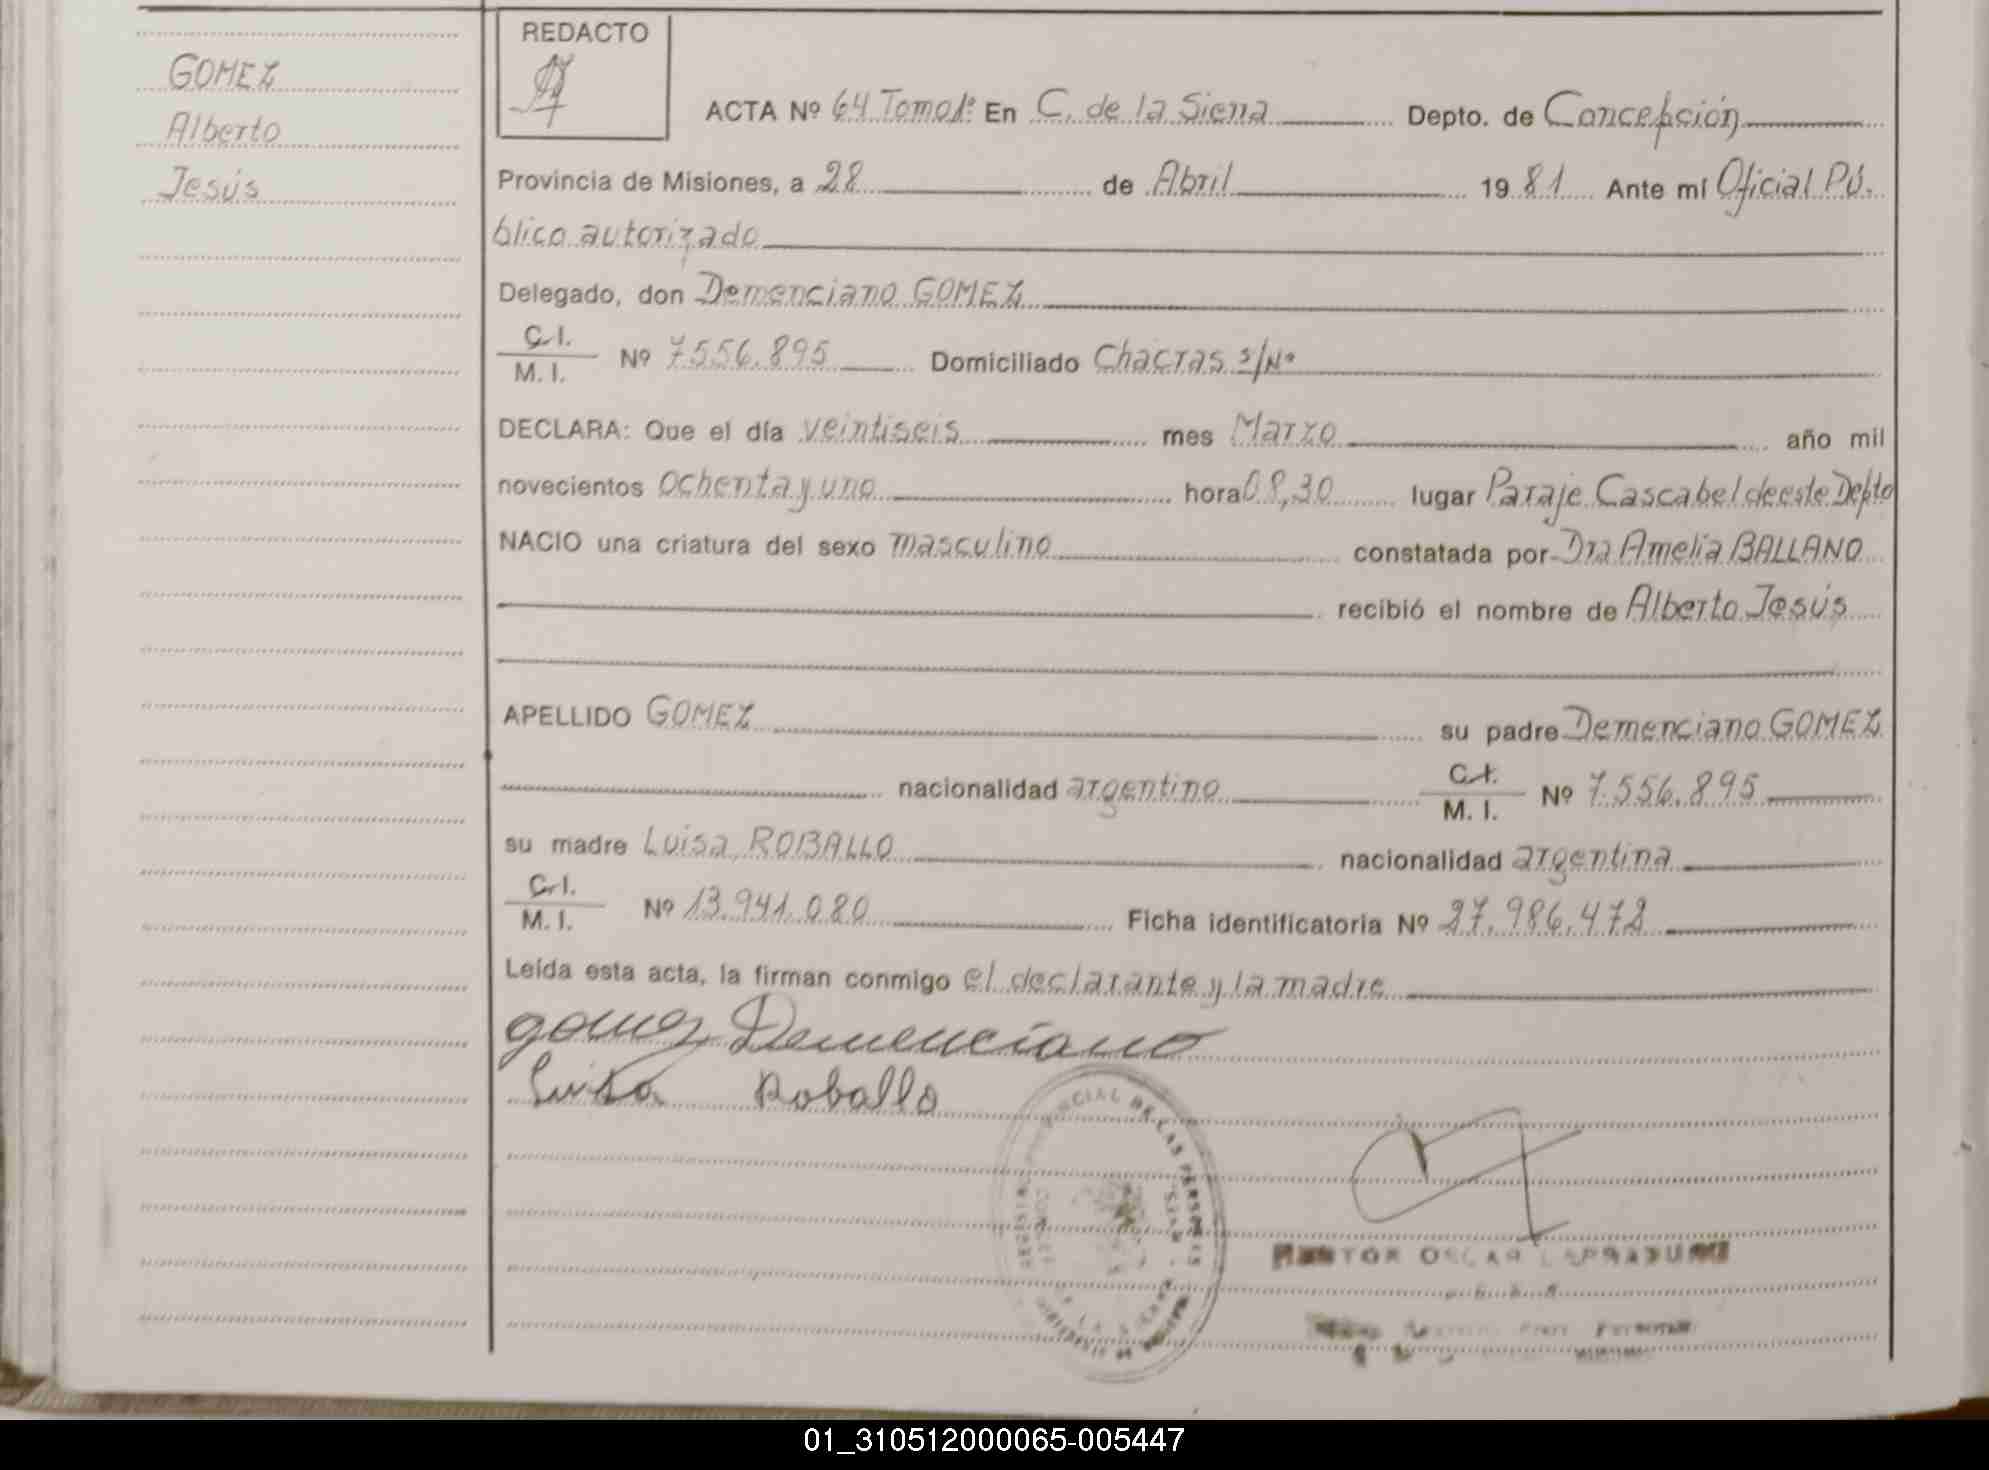 REDACTO
GOMEZ
Alberto
Jesús
ACTA Nº 64 Tomo 1º En C. de la Sierra Depto. de Concepción
Provincia de Misiones, a 28 de Abril 1981 Ante mí Oficial Pú.
blico autorizado
Delegado, don Demenciano GOMEZ
C.I.
M. I. Nº 7.556.895 Domiciliado Chacras s/Nº
DECLARA: Que el día veintiseis mes Marzo año mil
novecientos ochenta y uno hora 08,30 lugar Paraje Cascabel de este Depto
NACIO una criatura del sexo masculino constatada por Dra Amelia BALLANO
recibió el nombre de Alberto Jesús
APELLIDO GOMEZ su padre Demenciano GOMEZ
nacionalidad argentino C.I.
M. I. Nº 7.556.895
su madre Luisa ROBALLO nacionalidad argentina
C.I.
M. I. Nº 13.941.080 Ficha identificatoria Nº 27.986.472
Leída esta acta, la firman conmigo el declarante y la madre
gomez Demenciano
Luisa Roballo
DE LAS PERSONAS
OSCAR
01_310512000065-005447